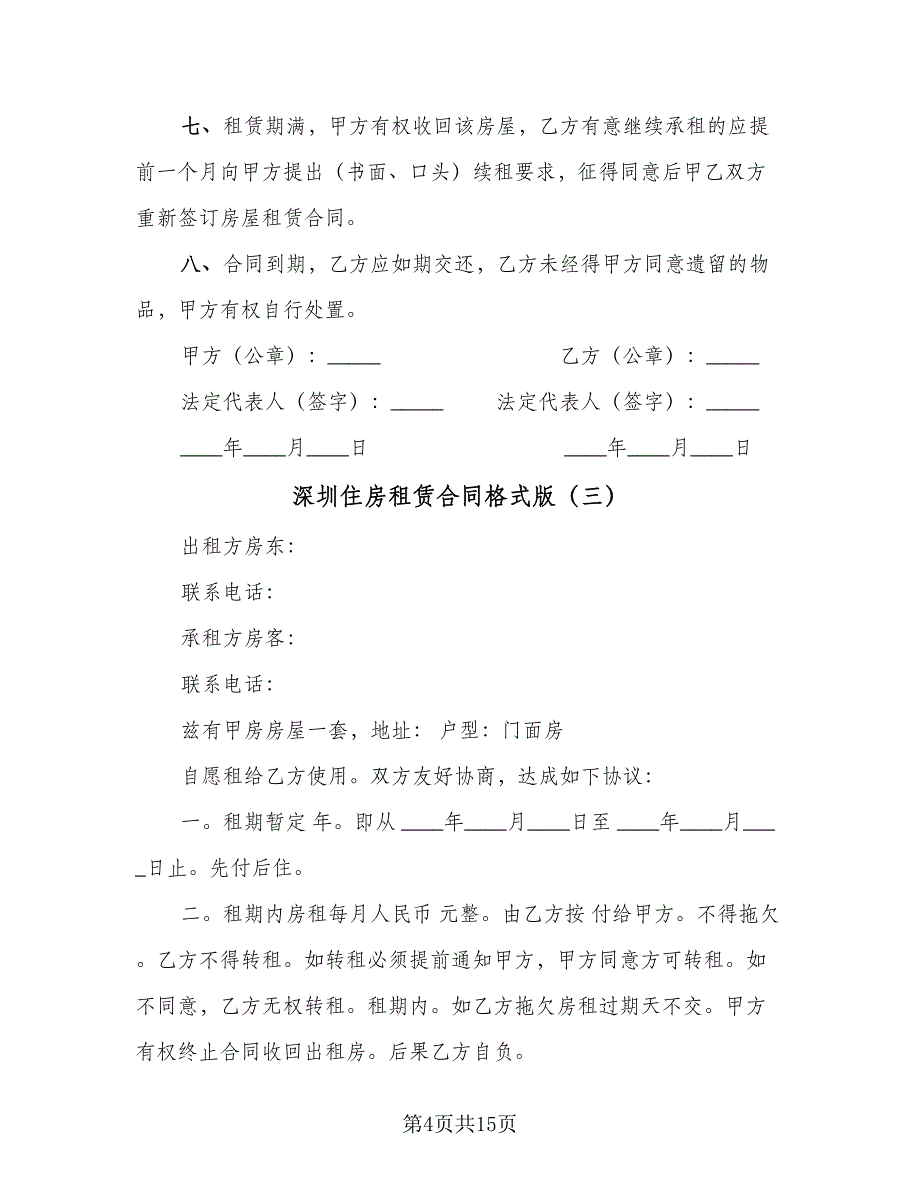 七、租赁期满，甲方有权收回该房屋，乙方有意继续承租的应提
前一个月向甲方提出（书面、口头）续租要求，征得同意后甲乙双方
重新签订房屋租赁合同。
八、合同到期，乙方应如期交还，乙方未经得甲方同意遗留的物
品，甲方有权自行处置。
甲方（公章）：_____ 乙方（公章）：_____
法定代表人（签字）：_____ 法定代表人（签字）：_____
____年____月____日 ____年____月____日
深圳住房租赁合同格式版（三）
出租方房东：
联系电话：
承租方房客：
联系电话：
兹有甲房房屋一套，地址： 户型：门面房
自愿租给乙方使用。双方友好协商，达成如下协议：
一。租期暂定 年。即从 ____年____月____日至 ____年____月___
_日止。先付后住。
二。租期内房租每月人民币 元整。由乙方按 付给甲方。不得拖欠
。乙方不得转租。如转租必须提前通知甲方，甲方同意方可转租。如
不同意，乙方无权转租。租期内。如乙方拖欠房租过期天不交。甲方
有权终止合同收回出租房。后果乙方自负。
第4页共15页